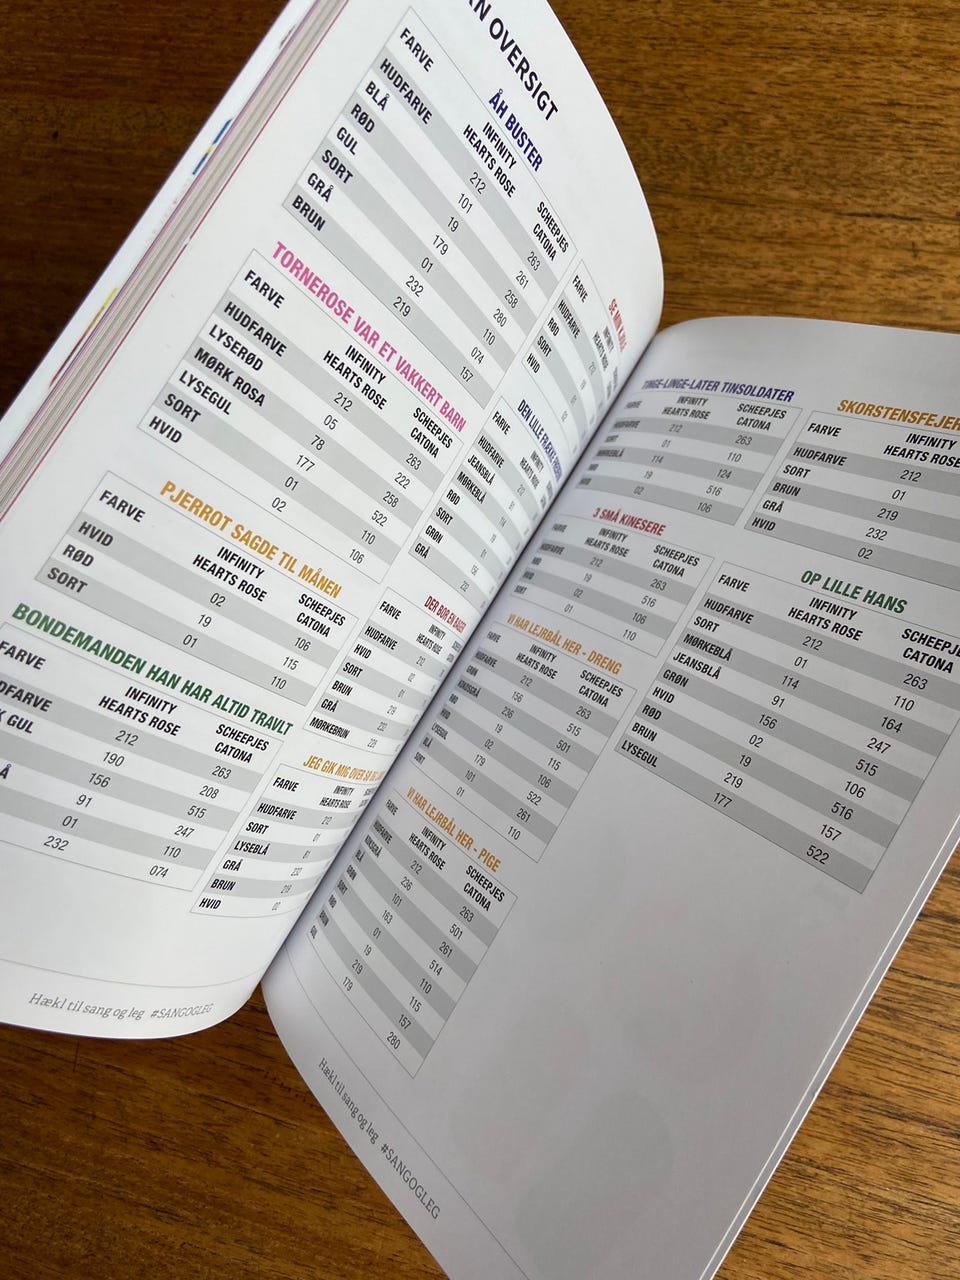 N OVERSIGT
ÅH BUSTER
FARVE INFINITY HEARTS ROSE SCHEEPJES CATONA
HUDFARVE 212 263
BLÅ 101 261
RØD 19 258
GUL 179 280
SORT 01 110
GRÅ 232 074
BRUN 219 157
TORNEROSE VAR ET VAKKERT BARN
FARVE INFINITY HEARTS ROSE SCHEEPJES CATONA
HUDFARVE 212 263
LYSERØD 05 222
MØRK ROSA 78 258
LYSEGUL 177 522
SORT 01 110
HVID 02 106
PJERROT SAGDE TIL MÅNEN
FARVE INFINITY HEARTS ROSE SCHEEPJES CATONA
HVID 02 106
RØD 19 115
SORT 01 110
BONDEMANDEN HAN HAR ALTID TRAVLT
FARVE INFINITY HEARTS ROSE SCHEEPJES CATONA
UDFARVE 212 263
K GUL 190 208
156 515
Å 91 247
01 110
232 074
SE MIN
FARVE
HUDFARVE 212
RØD 19
SORT 01
HVID 02
DEN LILLE FRÆKKE
FARVE INFINITY HEARTS
HUDFARVE 212
JEANSBLÅ 91
MØRKEBLÅ 114
RØD 19
SORT 01
GRØN 156
GRÅ 232
DER BOR EN BAGER
FARVE INFINITY HEARTS ROSE
HUDFARVE 212
HVID 02
SORT 01
BRUN 219
GRÅ 232
MØRKEBRUN
JEG GIK MIG OVER SØ OG
FARVE INFINITY HEARTS ROSE
HUDFARVE 212
SORT 01
LYSEBLÅ 81
GRÅ 232
BRUN 219
HVID 02
Hækl til sang og leg #SANGOGLEG
TINGE-LINGE-LATER TINSOLDATER
FARVE INFINITY HEARTS ROSE SCHEEPJES CATONA
HUDFARVE 212 263
SORT 01 110
MØRKEBLÅ 114 124
RØD 19 516
HVID 02 106
3 SMÅ KINESERE
FARVE INFINITY HEARTS ROSE SCHEEPJES CATONA
HUDFARVE 212 263
RØD 19 516
HVID 02 106
SORT 01 110
VI HAR LEJRBÅL HER - DRENG
FARVE INFINITY HEARTS ROSE SCHEEPJES CATONA
HUDFARVE 212 263
GRØN 156 515
KOKOSGRÅ 236 501
RØD 19 115
HVID 02 106
LYSEGUL 179 522
BLÅ 101 261
SORT 01 110
VI HAR LEJRBÅL HER - PIGE
FARVE INFINITY HEARTS ROSE SCHEEPJES CATONA
HUDFARVE 212 263
KOKSGRÅ 236 501
BLÅ 101 261
GRØN 163 514
SORT 01 110
RØD 19 115
BRUN 219 157
GUL 179 280
SKORSTENSFEJER
FARVE INFINITY HEARTS ROSE
HUDFARVE 212
SORT 01
BRUN 219
GRÅ 232
HVID 02
OP LILLE HANS
FARVE INFINITY HEARTS ROSE SCHEEPJE CATONA
HUDFARVE 212 263
SORT 01 110
MØRKEBLÅ 114 164
JEANSBLÅ 91 247
GRØN 156 515
HVID 02 106
RØD 19 516
BRUN 219 157
LYSEGUL 177 522
Hækl til sang og leg #SANGOGLEG